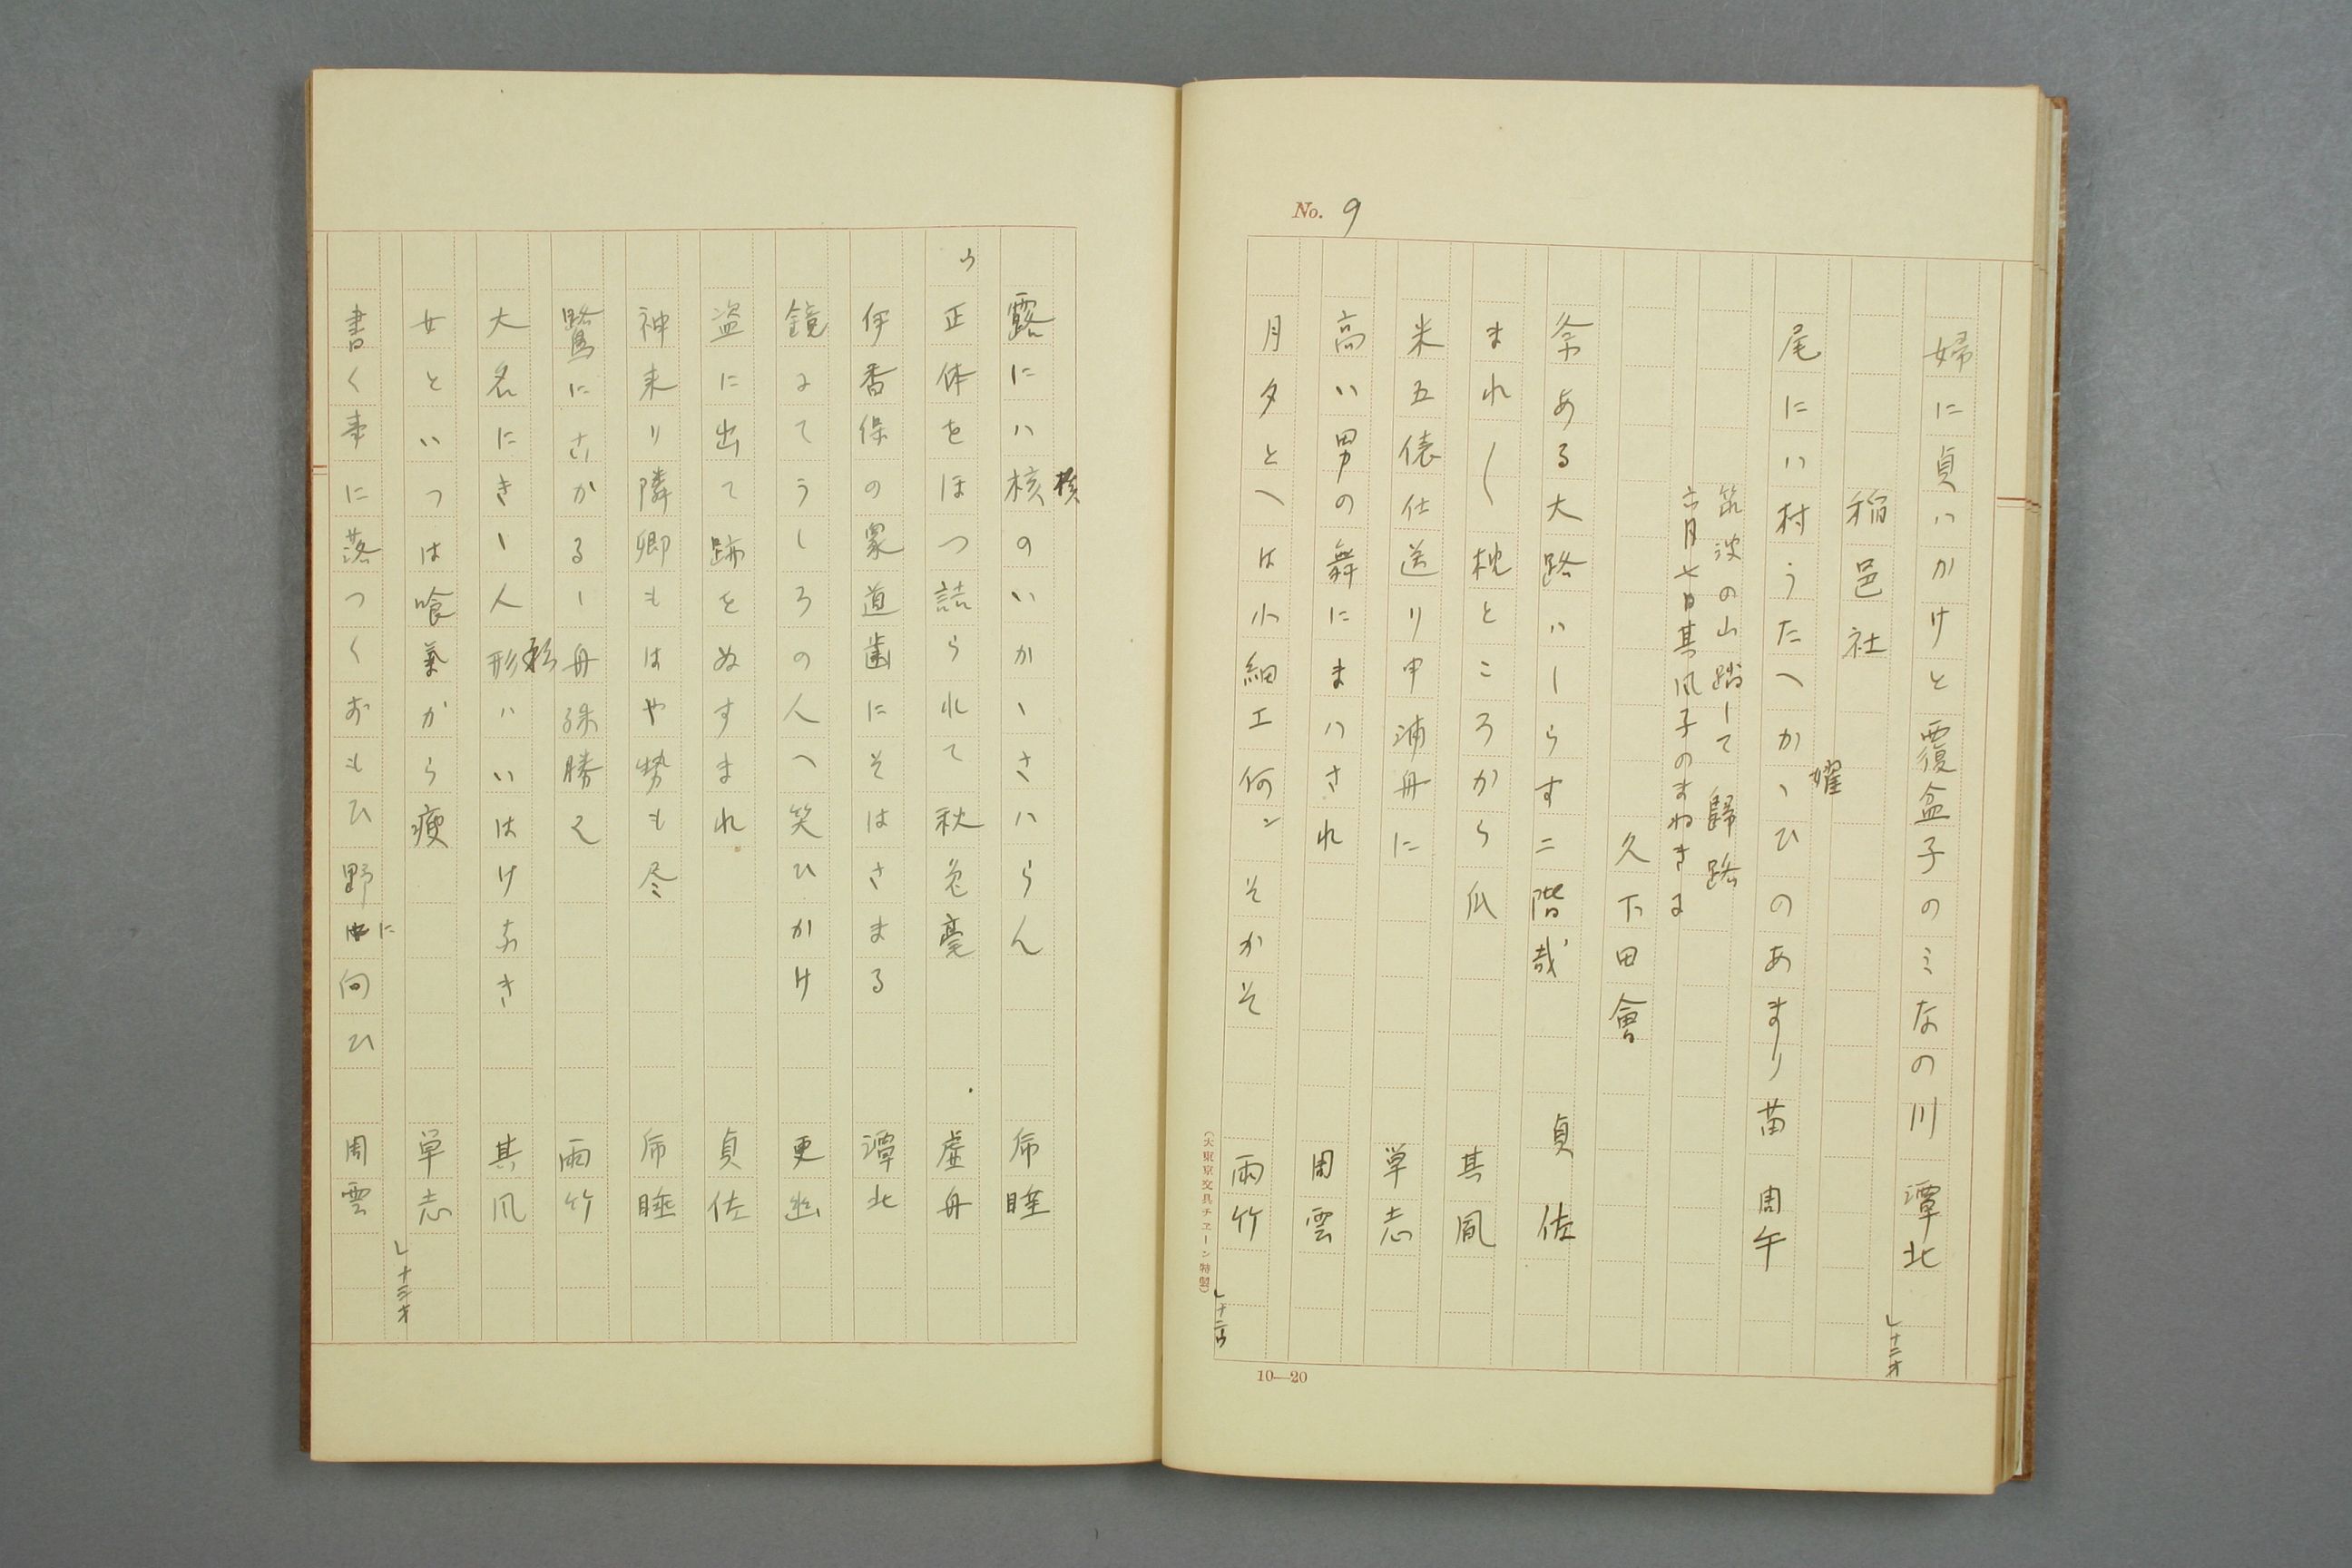 No. 9
婦に貞ハかけと覆盆子のミなの川 潭北
」十二才
稲邑社
尾にハ村うたへかゝひのあまり苗 周午
嬥
筑波の山踏して歸路
六月七日其風子のまねきに
久下田會
余ある大路ハしらす二階哉 貞佐
まれ〳〵枕ところから瓜 其風
米五俵仕送り申浦舟に 単志
高い男の舞にまハされ 周雲
月夕とへは小細工何ンそかそ 雨竹
」十二ウ
(大東京文具チェーン特製)
10—20
露にハ核のいかゝさハらん 命睡
核
ゥ
正体をほつ詰られて秋兎毫 虚舟
伊香保の冢道歯にそはさまる 潭北
鏡みてうしろの人へ笑ひかけ 更幽
盗に出て跡をぬすまれ 貞佐
神来り隣郷もはや勢も冬 命睡
鷺にさかるし舟殊勝え 雨竹
大名にきゝ人形ハいはけなき 其風
形
女といつは喰氣から痩 単志
」十三才
書く事に落つくおもひ野に向ひ 周雲